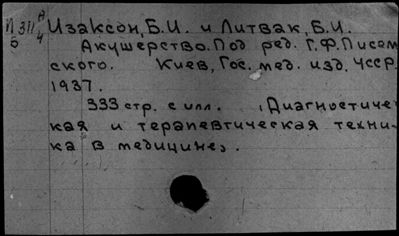 П 311 А Изаксон, Б.И. и Литвак, Б.И.
Б 4 Акушерство. Под ред. Г.Ф. Писем
ского. Киев, Гос. мед. изд. УССР.
1937.
333 стр. с илл. (Диагностичес
кая и терапевтическая техни-
ка в медицине).